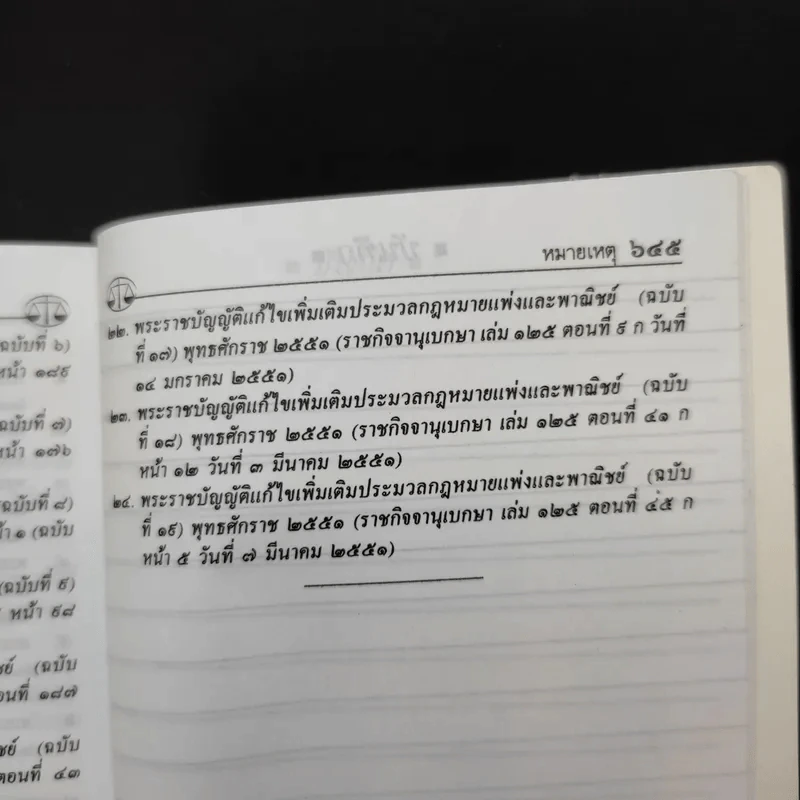 ฉบับที่ ๖)
หน้า ๑๘๙
ฉบับที่ ๗)
หน้า ๑๗๖
ฉบับที่ ๘)
หน้า ๑ (ฉบับ
(ฉบับที่ ๙)
หน้า ๙๘
(ฉบับ
ตอนที่ ๑๘๗
(ฉบับ
ตอนที่ ๔๓
หมายเหตุ ๖๔๕
๒๒. พระราชบัญญัติแก้ไขเพิ่มเติมประมวลกฎหมายแพ่งและพาณิชย์ (ฉบับ
ที่ ๑๗) พุทธศักราช ๒๕๕๑ (ราชกิจจานุเบกษา เล่ม ๑๒๕ ตอนที่ ๙ ก วันที่
๑๔ มกราคม ๒๕๕๑)
๒๓. พระราชบัญญัติแก้ไขเพิ่มเติมประมวลกฎหมายแพ่งและพาณิชย์ (ฉบับ
ที่ ๑๘) พุทธศักราช ๒๕๕๑ (ราชกิจจานุเบกษา เล่ม ๑๒๕ ตอนที่ ๔๑ ก
หน้า ๑๒ วันที่ ๓ มีนาคม ๒๕๕๑)
๒๔. พระราชบัญญัติแก้ไขเพิ่มเติมประมวลกฎหมายแพ่งและพาณิชย์ (ฉบับ
ที่ ๑๙) พุทธศักราช ๒๕๕๑ (ราชกิจจานุเบกษา เล่ม ๑๒๕ ตอนที่ ๔๕ ก
หน้า ๕ วันที่ ๗ มีนาคม ๒๕๕๑)